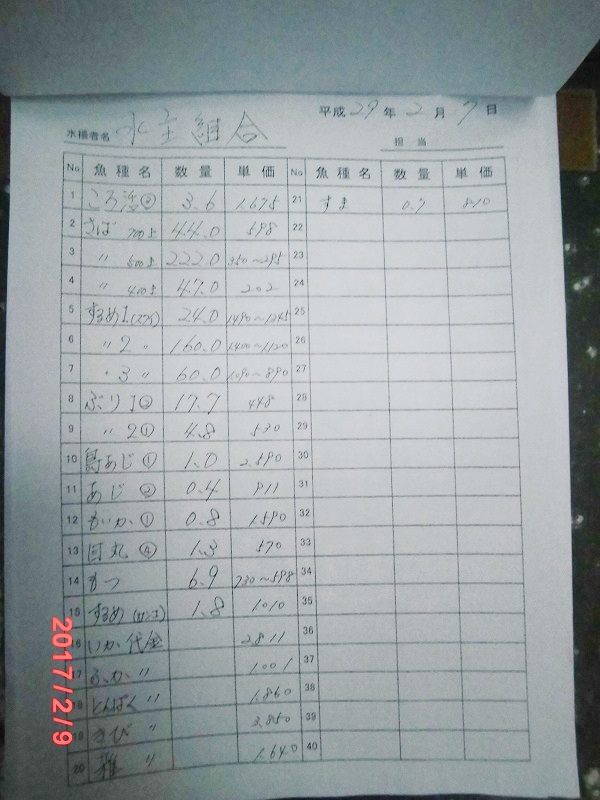 平成29年2月7日
水揚者名 水主組合
担当
No 魚種名 数量 単価 No 魚種名 数量 単価
1 ころ活② 3.6 1.675 21 すま 0.7 810
2 さば 700上 44.0 598 22
3 〃 500上 222.0 350~295 23
4 〃 400上 47.0 202 24
5 するめ1(スス) 24.0 1490~1345 25
6 〃 2 〃 160.0 1400~1120 26
7 〃 3 〃 60.0 1090~890 27
8 ぶり1② 17.7 448 28
9 〃 2① 4.8 530 29
10 島あじ① 1.0 2.590 30
11 あじ② 0.4 911 31
12 もいか① 0.8 1.590 32
13 目丸④ 1.3 570 33
14 もつ 6.9 730~598 34
15 するめ 1.8 1010 35
16 いか代金 2811 36
17 ふか 〃 1001 37
18 とんぱく 〃 1.860 38
19 きび 〃 3.850 39
20 雑 〃 1.640 40
2017/2/9